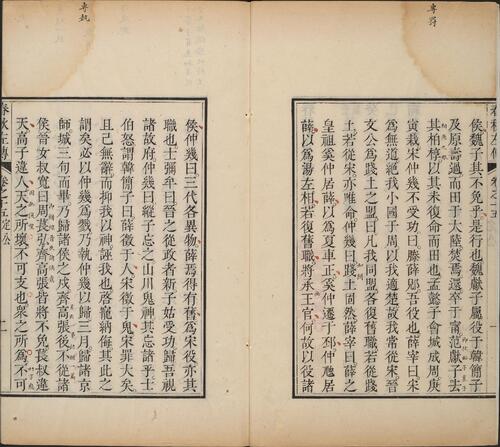 專罰
侯魏子其不免乎是行也魏獻子屬役於韓簡子
及原壽過而田于大陸焚焉還卒于甯范獻子去
其柏椁以其未復命而田也孟懿子會城成周庚
寅栽宋仲幾不受功曰滕薛郳吾役也薛宰曰宋
爲無道絕我小國于周以我適楚故我常從宋晉
文公爲踐土之盟曰凡我同盟各復舊職若從踐
土若從宋亦唯命仲幾曰踐土固然薛宰曰薛之
皇祖奚仲居薛以爲夏車正奚仲遷于邳仲虺居
薛以爲湯左相若復舊職將承王官何故以役諸
專執
侯仲幾曰三代各異物薛焉得有舊爲宋役亦其
職也士彌牟曰晉之從政者新子姑受功歸吾視
諸故府仲幾曰縱子忘之山川鬼神其忘諸乎士
伯怒謂韓簡子曰薛徵于人宋徵于鬼宋罪大矣
且己無辭而抑我以神誣我也啟寵納侮其此之
謂矣必以仲幾爲戮乃執仲幾以歸三月歸諸京
師城三旬而畢乃歸諸侯之戍齊高張後不從諸
侯晉女叔寬曰周萇弘齊高張皆將不免萇叔違
天高子違人天之所壞不可支也衆之所爲不可
春秋左傳 卷之十五定公 一